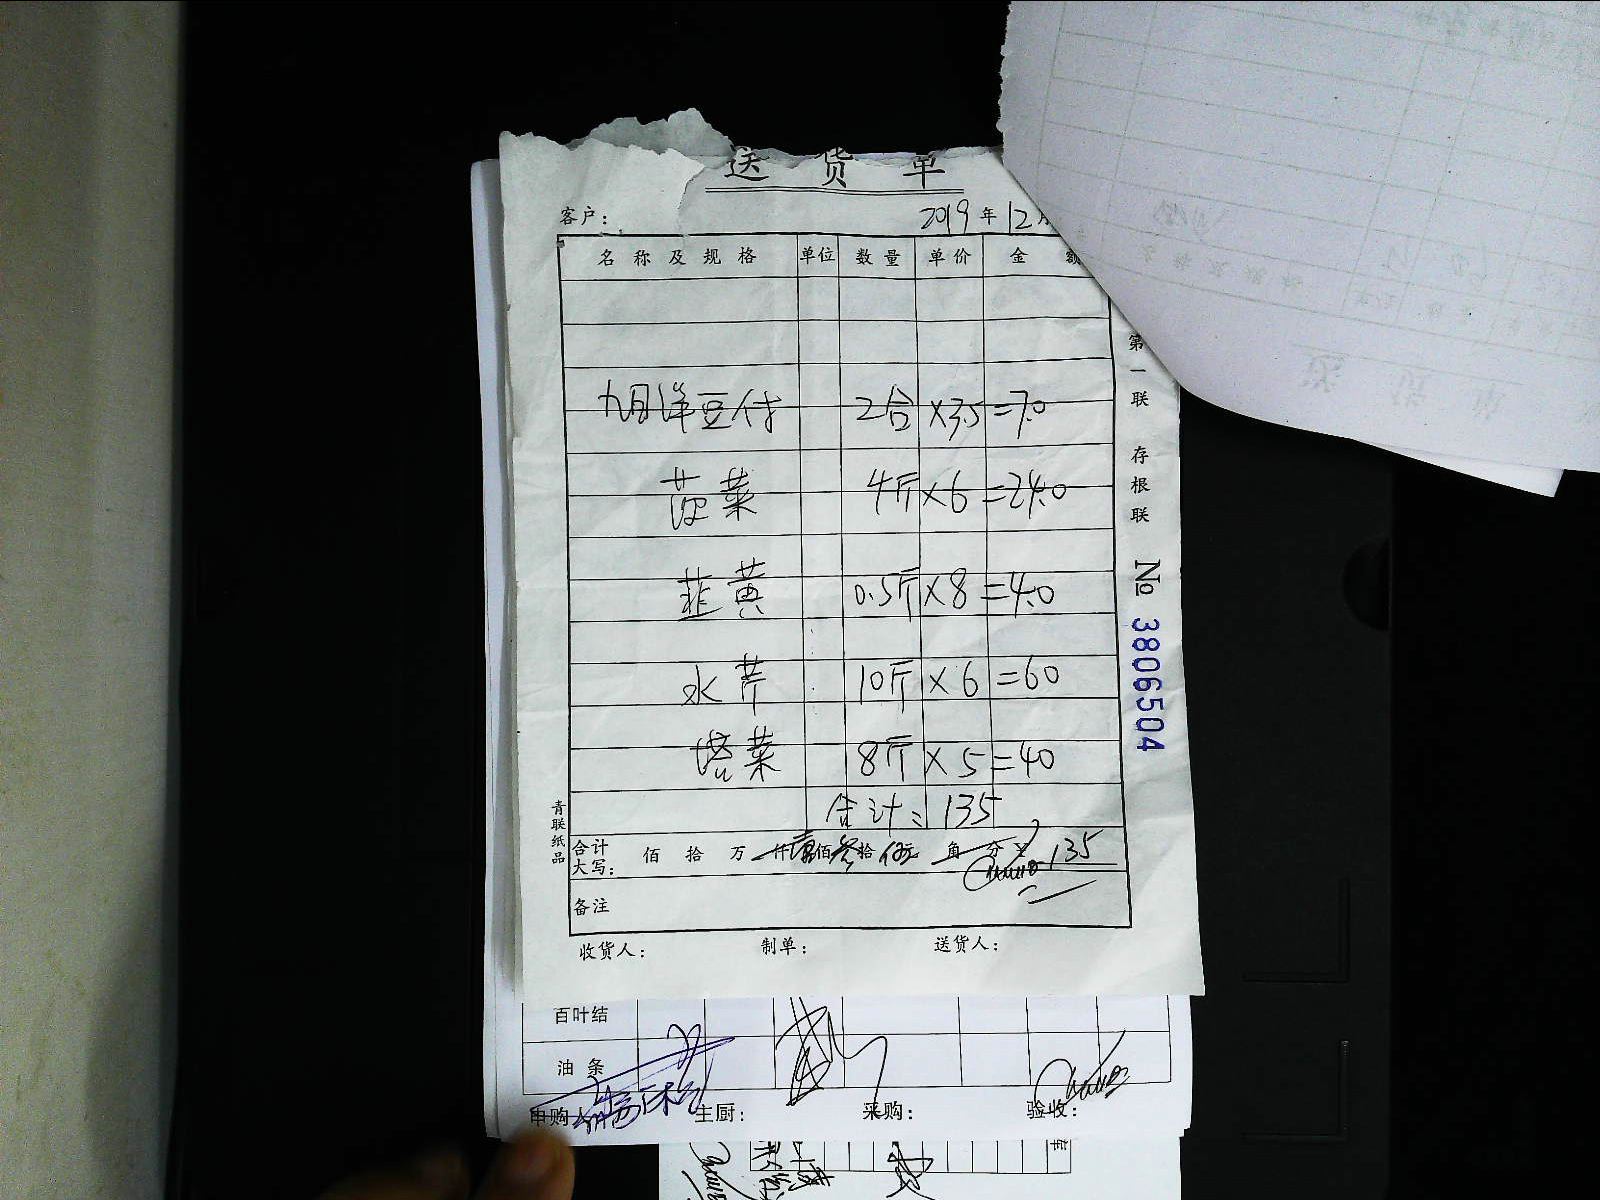 送 货 单
客户： 2019 年 12 月
名 称 及 规 格 单位 数 量 单 价 金 额
九月洋豆付 2合 ×3.5 =7.0
菠菜 4斤 ×6 =24.0
韭黄 0.5斤 ×8 =4.0
水芹 10斤 ×6 =60
塔菜 8斤 ×5 =40
合计： 135
合计 佰 拾 万 仟 壹 佰 叁 拾 伍元 角 分 ¥ 135
大写：
备注
收货人： 制单： 送货人：
第一联 存根联
No 3806504
青联纸品
百叶结
油 条
申购人 主厨： 采购： 验收：